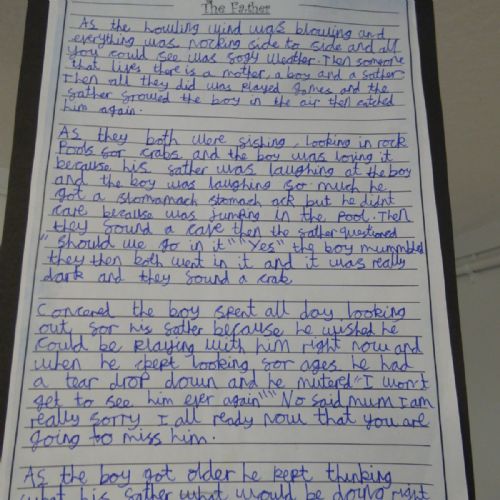 The Father
As the howling wind was blowing and
everything was rocking side to side and all
you could see was fogy weather. Then someone
that lives there is a mother, a boy and a father
Then all they did was played games and the
father frowed the boy in the air then catched
him again.
As they both were fishing, looking in rock
Pools for crabs and the boy was loving it
because his father was laughing at the boy
and the boy was laughing so much he
got a stomamach stomach ack but he didnt
care because was Jumping in the pool. Then
they found a cave then the father questioned
"should we go in it" "Yes" the boy mummbled
they then both went in it and it was really
dark and they found a crab
Concered the boy spent all day looking
out for his father because he wished he
could be playing with him right now and
when he cept looking for ages he had
a tear drop down and he muterd "I won't
get to see him ever again" "No said mum I am
really sorry I all ready now that you are
going to miss him.
As the boy got older he kept thinking
what his father what would be doing right